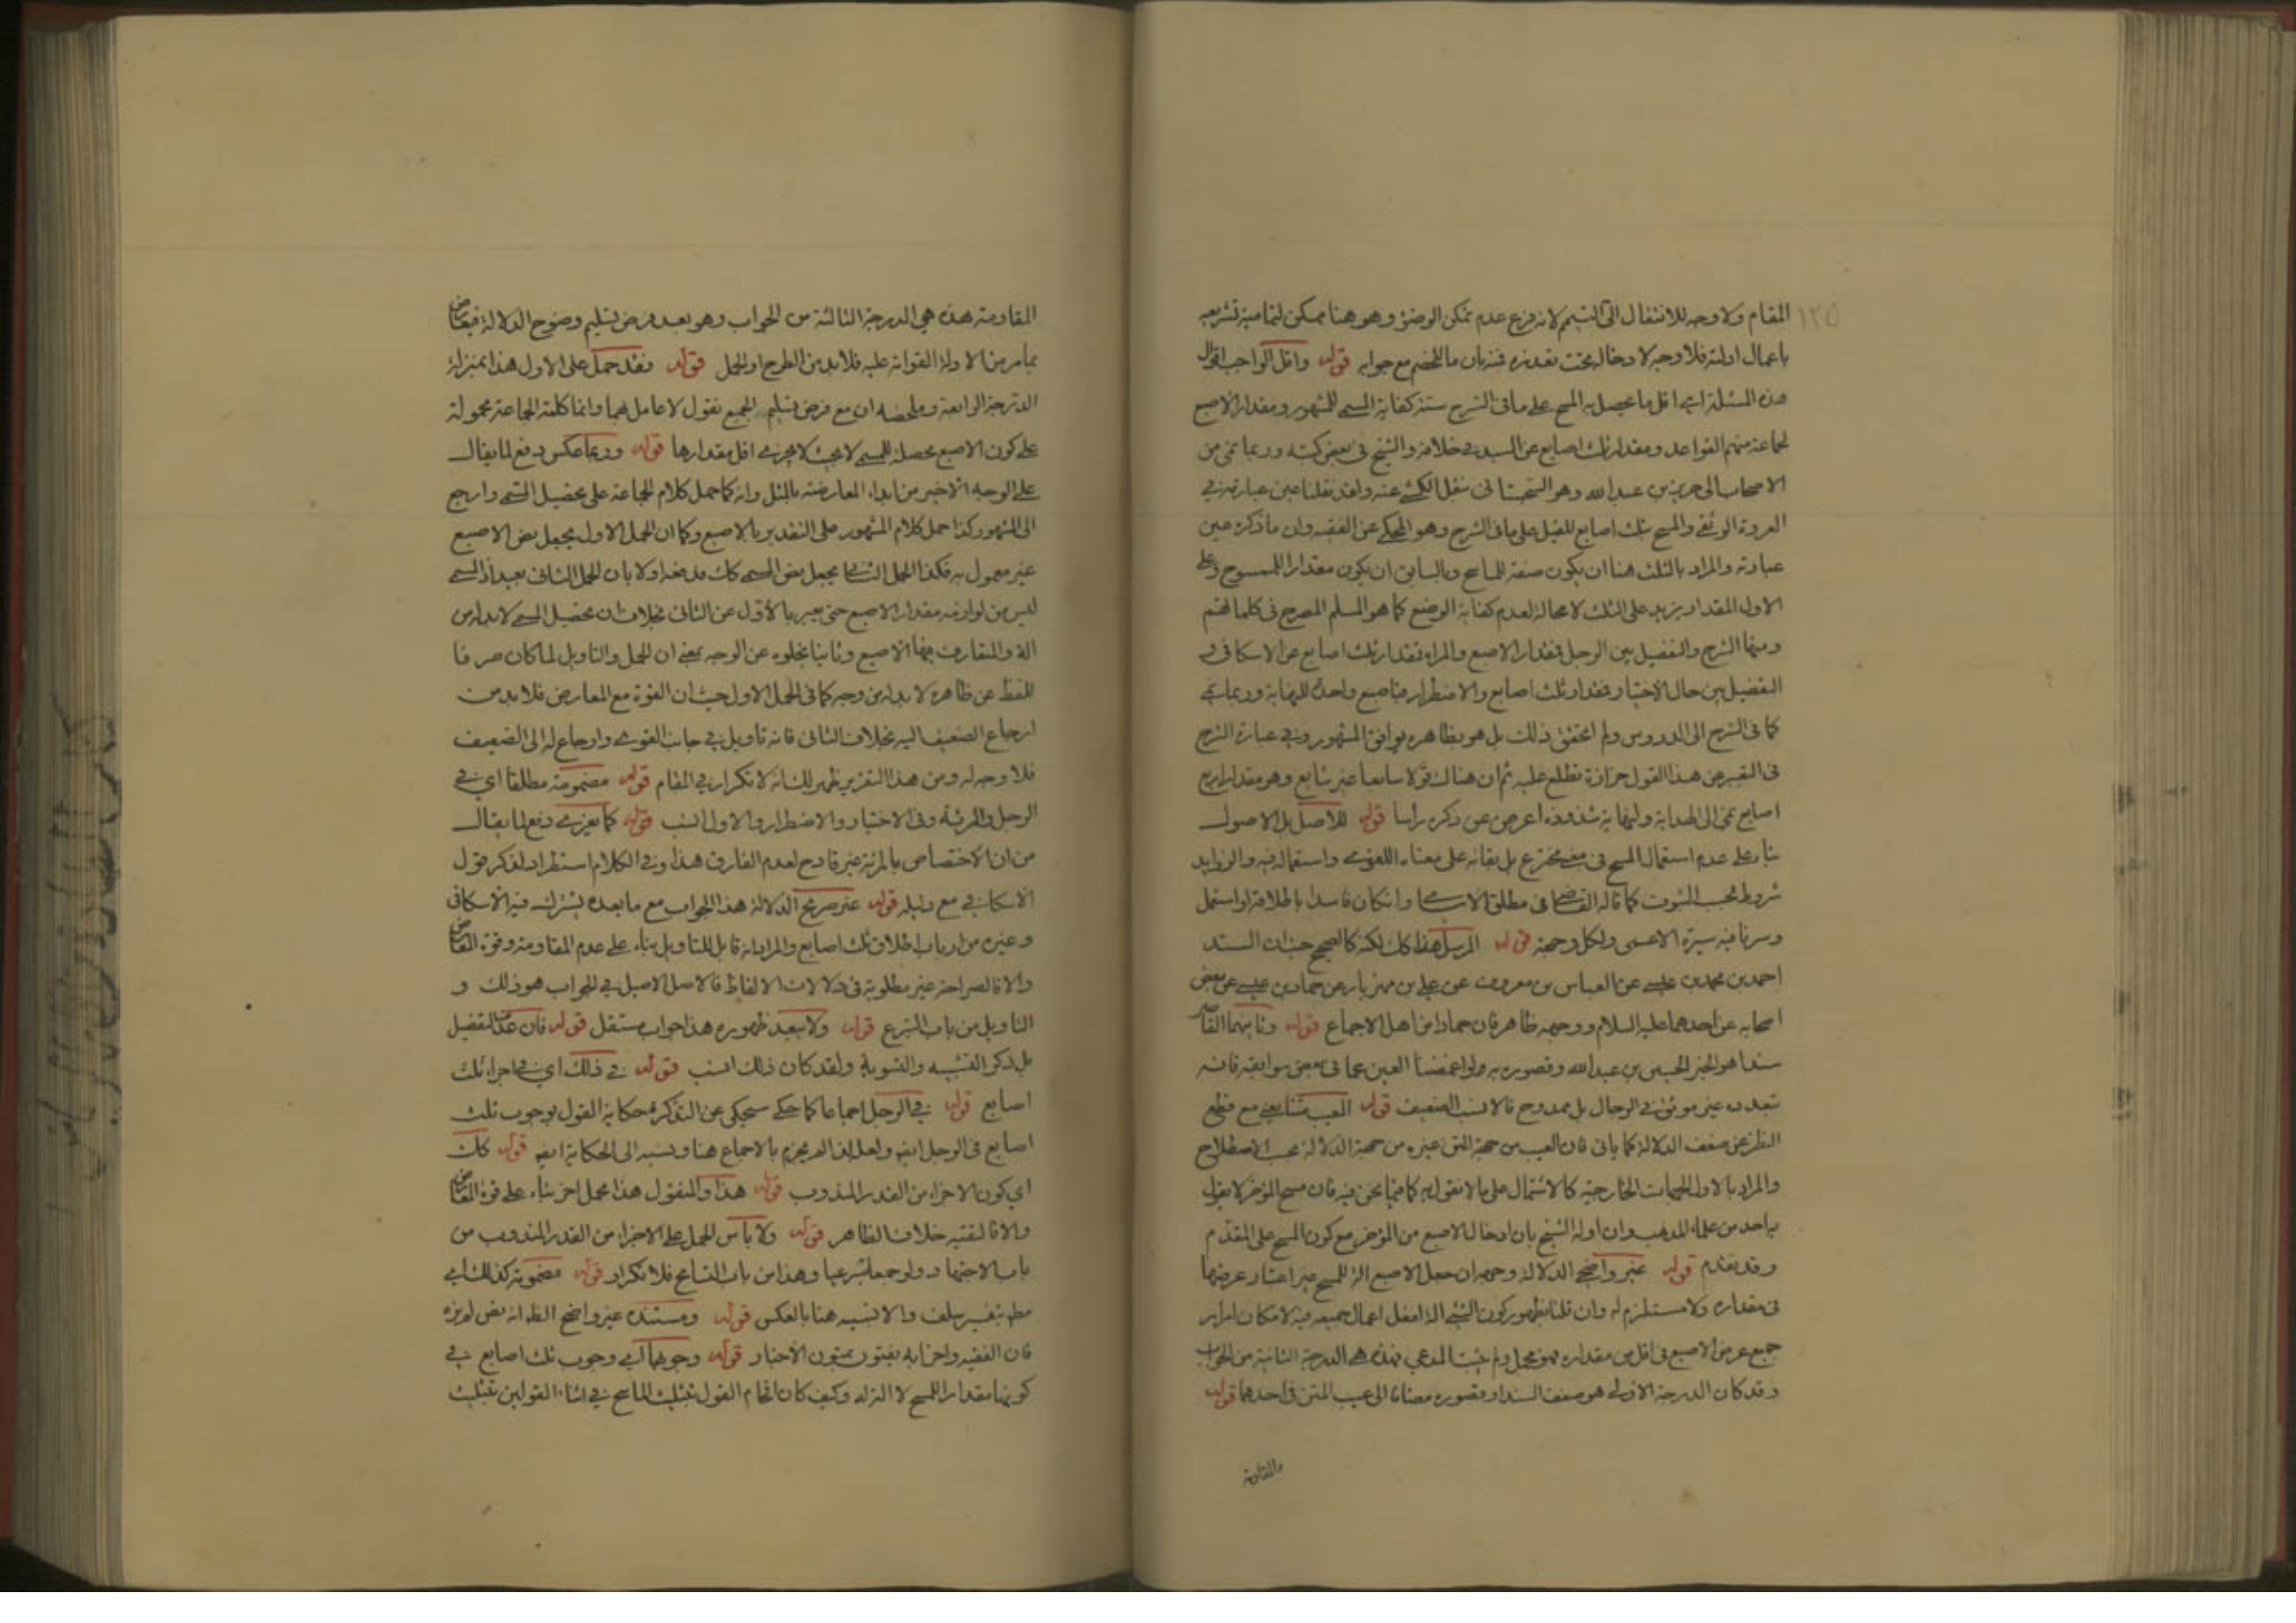 ١٢٥
المقام ولا وجه للانتقال الى التيمم لانه فرع عدم تمكن الوضوء وهو هنا ممكن لتمامية تشريعه
باعمال ادلته فلا وجه لادخاله تحت تعذره فبان ما للخصم مع جوابه قوله واقل الواجب اقوال
هذه المسئلة اي اقل ما يحصل به المسح على ما في الشرح ستة كفاية المسمى للمشهور ومقدار الاصبع
لجماعة منهم القواعد ومقدار ثلث اصابع عن السيد في خلافه والشيخ في بعض كتبه وربما نمى من
الاصحاب الى حريز بن عبد الله وهو السجستاني عنه وقد نقلنا عين عبارته في
العروة الوثقى والمسح بثلث اصابع للقيل على ما في الشرح وهو المحكى عن الفقيه وان ما ذكره عين
عبارته والمراد بالثلث هنا ان يكون صفة للماسح وبالسابق ان يكون مقدارا للممسوح وعلى
الاول المقدار يزيد على الثلث لا محالة لعدم كفاية الوضع كما هو المسلم المصرح في كلماتهم
ومنها الشرح والتفصيل بين الرجل فمقدار الاصبع والمراة فمقدار ثلث اصابع عن الاسكافي و
التفصيل بين حال الاختيار فمقدار ثلث اصابع والاضطرار فاصبع واحدة للنهاية وربما نمى
كما في الشرح الى الدروس ولم اتحقق ذلك بل هو بظاهره يوافق المشهور وفي عبارة الشرح
في التعبير عن هذا القول حزازة تطلع عليه ثم ان هناك قولا سابعا غير شايع وهو مقدار اربع
اصابع نمى الى الهداية ولنهاية شذوذه اعرض عن ذكره راسا قوله للاصل بل الاصول
بناء على عدم استعمال المسح في معنى مخترع بل بقائه على معناه اللغوي واستعماله فيه والزوايد
شروط بحسب الثبوت كما قاله القاضي في مطلق الاسامي وان كان فاسدا باطلاقه او استعمل
وسرنا فيه سيرة الاعمى ولكل وجهة قوله المرسل هذا كك لكنه كالصحيح حيث ان السند
احمد بن محمد بن عيسى عن العباس بن معروف عن علي بن مهزيار عن حماد بن عيسى عن بعض
اصحابه عن احدهما عليه السلام ووجهه ظاهر فان حمادا من اهل الاجماع قوله وثانيهما القاصر
سندا هو الخبر الحسين بن عبد الله وقصوره به ولو اغمضنا العين عما في بعض سوابقه فانه
بعدده غير موثق في الرجال بل ممدوح فالانسب الضعيف قوله المعيب متنا يعني مع قطع
النظر عن ضعف الدلالة كما ياتي فان العيب من جهة المتن غيره من جهة الدلالة بحسب الاصطلاح
والمراد بالاول الجهات الخارجية كالاشتمال على ما لا نقول به كما فيما نحن فيه فان مسح المؤخر لا يقول
به احد من علماء المذهب وان اوله الشيخ بان ادخال الاصبع من المؤخر مع كون المسح على المقدم
وقد تقدم قوله غير واضح الدلالة وجهه ان جعل الاصبع الة للمسح غير اعتبار عرضها
في مقداره ولا مستلزم له وان قلنا بظهور كون الشيء الة لفعل اعمال جميعه فيه لامكان امرار
جميع عرض الاصبع في اقل من مقداره فهو مجمل ولم يثبت المدعي فهذه هي الدرجة الثانية من الجواب
وقد كان الدرجة الاولى هو ضعف السند او قصوره مضافا الى عيب المتن في احدهما قوله
والمقاومة
المقاومة هذه هي الدرجة الثالثة من الجواب وهو بعد فرض تسليم وضوح الدلالة فيعارض
بما مر من الادلة الفواتة عليه فلا بد من الطرح او الحمل قوله فقد حمل على الاول هذا بمنزلة
الدرجة الرابعة وملخصه ان مع فرض تسليم الجميع نقول لا عامل بهما وانما كلمة الجماعة محمولة
على كون الاصبع محصلة للمسمى لا بحيث لا يجزي اقل مقدارها قوله وربما عكس دفع لما يقال
على الوجه الاخير من ابداء المعارضة بالمثل وانه كما حمل كلام الجماعة على تحصيل المسمى وارجع
الى المشهور كذا حمل كلام المشهور على التقدير بالاصبع وكما ان الحمل الاول يجعل نص الاصبع
غير معمول به فكذا الحمل الثاني يجعل نص المسمى كك فدفعه اولا بان الحمل الثاني بعيد اذ المسمى
ليس من لوازمه مقدار الاصبع حتى يعبر بالاول عن الثاني بخلاف ان تحصيل المسمى لا بد له من
الة والمتعارف فيها الاصبع وثانيا بخلوه عن الوجه بمعنى ان الحمل والتاويل لما كان صرفا
للفظ عن ظاهره لا بد له من وجه كما في الحمل الاول حيث ان القوة مع المعارض فلا بد من
ارجاع الضعيف اليه بخلاف الثاني فانه تاويل في جانب القوي وارجاع له الى الضعيف
فلا وجه له ومن هذا التقرير ظهر لك انه لا تكرار في المقام قوله مضمومة مطلقا اي في
الرجل والمرئة وفي الاختيار والاضطرار والاول انسب قوله كما يعزى دفع لما يقال
من ان الاختصاص بالمرئة غير قادح لعدم الفارق هذا وفي الكلام استطراد لذكر قول
الاسكافي مع دليله قوله غير صريح الدلالة هذا الجواب مع ما بعده يشترك فيه الاسكافي
وغيره من ارباب اطلاق ثلث اصابع والمراد انه قابل للتاويل بناء على عدم المقاومة وقوة المعارض
والا فالصراحة غير مطلوبة في دلالات الالفاظ فالاصل الاصيل في الجواب هو ذلك و
التاويل من باب التبرع قوله ولا يبعد ظهوره هذا جواب مستقل قوله فان عدم التفصيل
بل ذكر التشبيه والتسوية ولقد كان ذلك انسب قوله في ذلك اي في اجزاء ثلث
اصابع قوله في الرجل اجماعا كما حكى سيحكى عن التذكرة حكاية القول بوجوب ثلث
اصابع في الرجل ايضا ولعله لذا لم يجزم بالاجماع هنا ونسبه الى الحكاية ايضا قوله كك
اي كون الاجزاء من القدر المندوب قوله هذا والمنقول هذا محمل اخر بناء على قوة المعارض
والا فالتقية خلاف الظاهر قوله ولا باس الحمل على الاجزاء من القدر المندوب من
باب الاجتهاد ولو جمعا تبرعيا وهذا من باب التسامح فلا تكرار قوله مضمومة كذلك اي
مطلقا بتفسير سلف والا نسبه هنا بالعكس قوله ومستنده غير واضح الظ انه نص لم يره
فان الفقيه واحزابه يفتون بمتون الاخبار قوله وجوبهما اي وجوب ثلث اصابع في
كونها مقدارا للمسح لا الة له وكيف كان اتمام القول بتثليث الماسح في اثناء القولين بتثليث